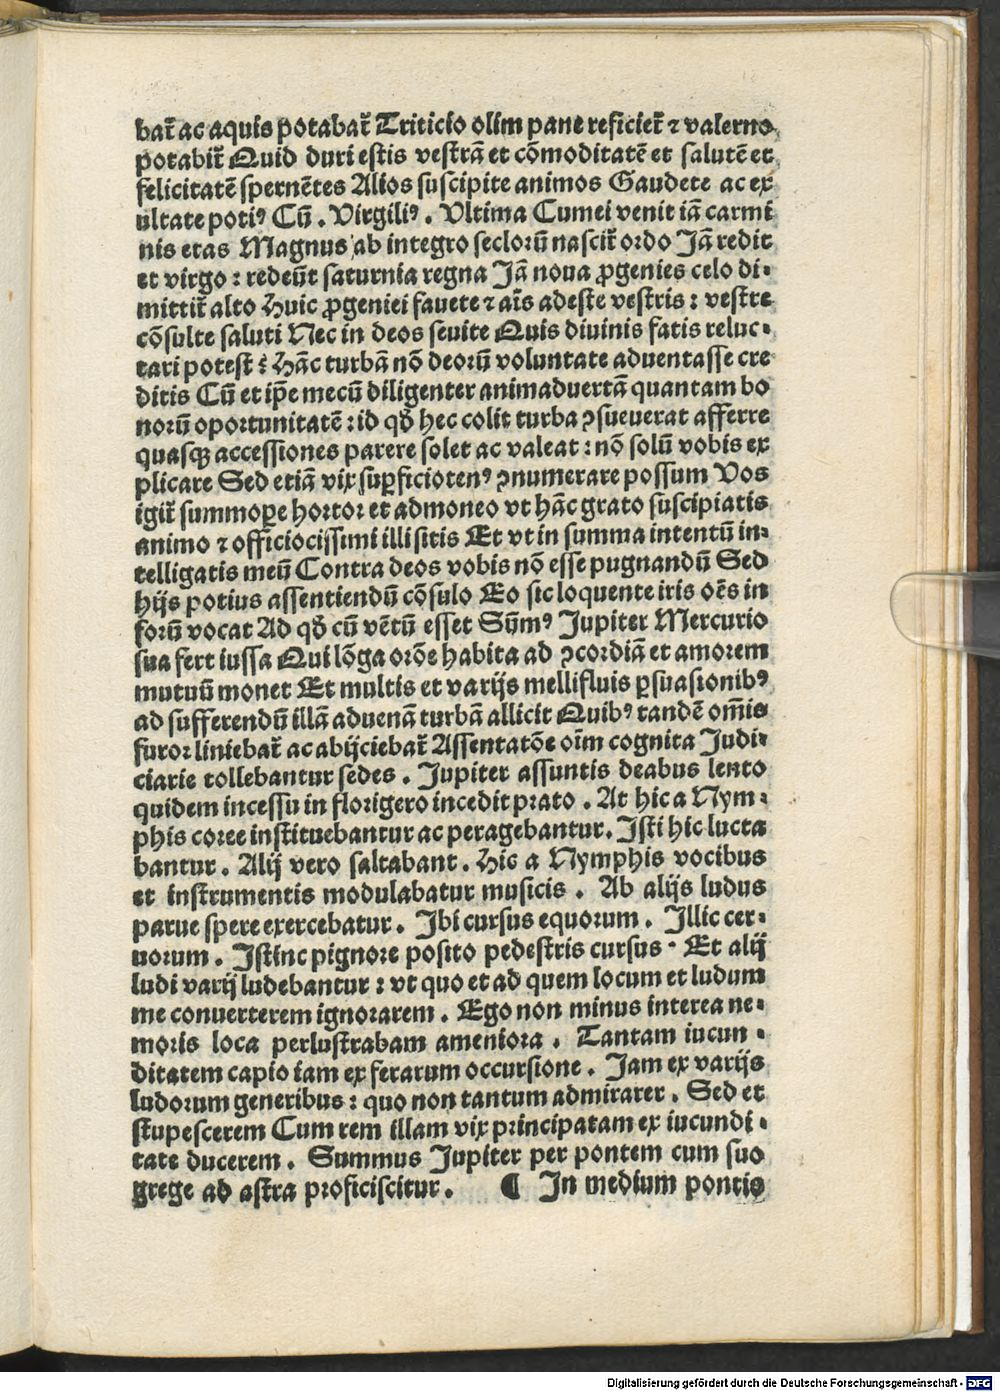 bat᷑ ac aquis potabat᷑ Triticio olim pane reficiet᷑ ⁊ valerno
potabit᷑ Quid duri estis vestrā et cōmoditatē et salutē et
felicitatē spernētes Alios suscipite animos Gaudete ac ex
ultate potiꝰ Cū . Virgiliꝰ . Vltima Cumei venit iā carmi
nis etas Magnus ab integro seclorū nascit᷑ ordo Jā redit
et virgo : redeūt saturnia regna Jā noua ꝓgenies celo di⸗
mittit᷑ alto Huic ꝓgeniei fauete ⁊ aīs adeste vestris : vestre
cōsulte saluti Nec in deos seuite Quis diuinis fatis reluc⸗
tari potest : Hāc turbā nō deorū voluntate aduentasse cre
ditis Cū et ip̄e mecū diligenter animaduertā quantam bo
norū oportunitatē : id qđ hec colit turba ꝯsueuerat afferre
quasqꝫ accessiones parere solet ac valeat : nō solū vobis ex
plicare Sed etiā vix suꝑficiotenꝰ ꝯnumerare possum Vos
igit᷑ summoꝑe hortor et admoneo vt hāc grato suscipiatis
animo ⁊ officiocissimi illi sitis Et vt in summa intentū in⸗
telligatis meū Contra deos vobis nō esse pugnandū Sed
hijs potius assentiendū cōsulo Eo sic loquente iris oēs in
forū vocat Ad qđ cū vētū esset Sūmꝰ Jupiter Mercurio
sua fert iussa Qui lōga orōe habita ad ꝯcordiā et amorem
mutuū monet Et multis et varijs mellifluis ꝑsuasionibꝰ
ad sufferendū illā aduenā turbā allicit Quibꝰ tandē om̄is
furor liniebat᷑ ac abijciebat᷑ Assentatōe oīm cognita Judi⸗
ciarie tollebantur sedes . Jupiter assuntis deabus lento
quidem incessu in florigero incedit prato . At hic a Nym⸗
phis coree instituebantur ac peragebantur. Isti hic lucta
bantur . Alij vero saltabant . Hic a Nymphis vocibus
et instrumentis modulabatur musicis . Ab alijs ludus
parue spere exercebatur . Ibi cursus equorum . Illic cer⸗
uorum . Istinc pignore posito pedestris cursus . Et alij
ludi varij ludebantur : vt quo et ad quem locum et ludum
me conuerterem ignorarem . Ego non minus interea ne⸗
moris loca perlustrabam ameniora . Tantam iucun⸗
ditatem capio iam ex ferarum occursione . Jam ex varijs
ludorum generibus : quo non tantum admirarer . Sed et
stupescerem Cum rem illam vix principatam ex iucundi⸗
tate ducerem . Summus Jupiter per pontem cum suo
grege ad astra proficiscitur . ¶ In medium pontis
Digitalisierung gefördert durch die Deutsche Forschungsgemeinschaft - DFG